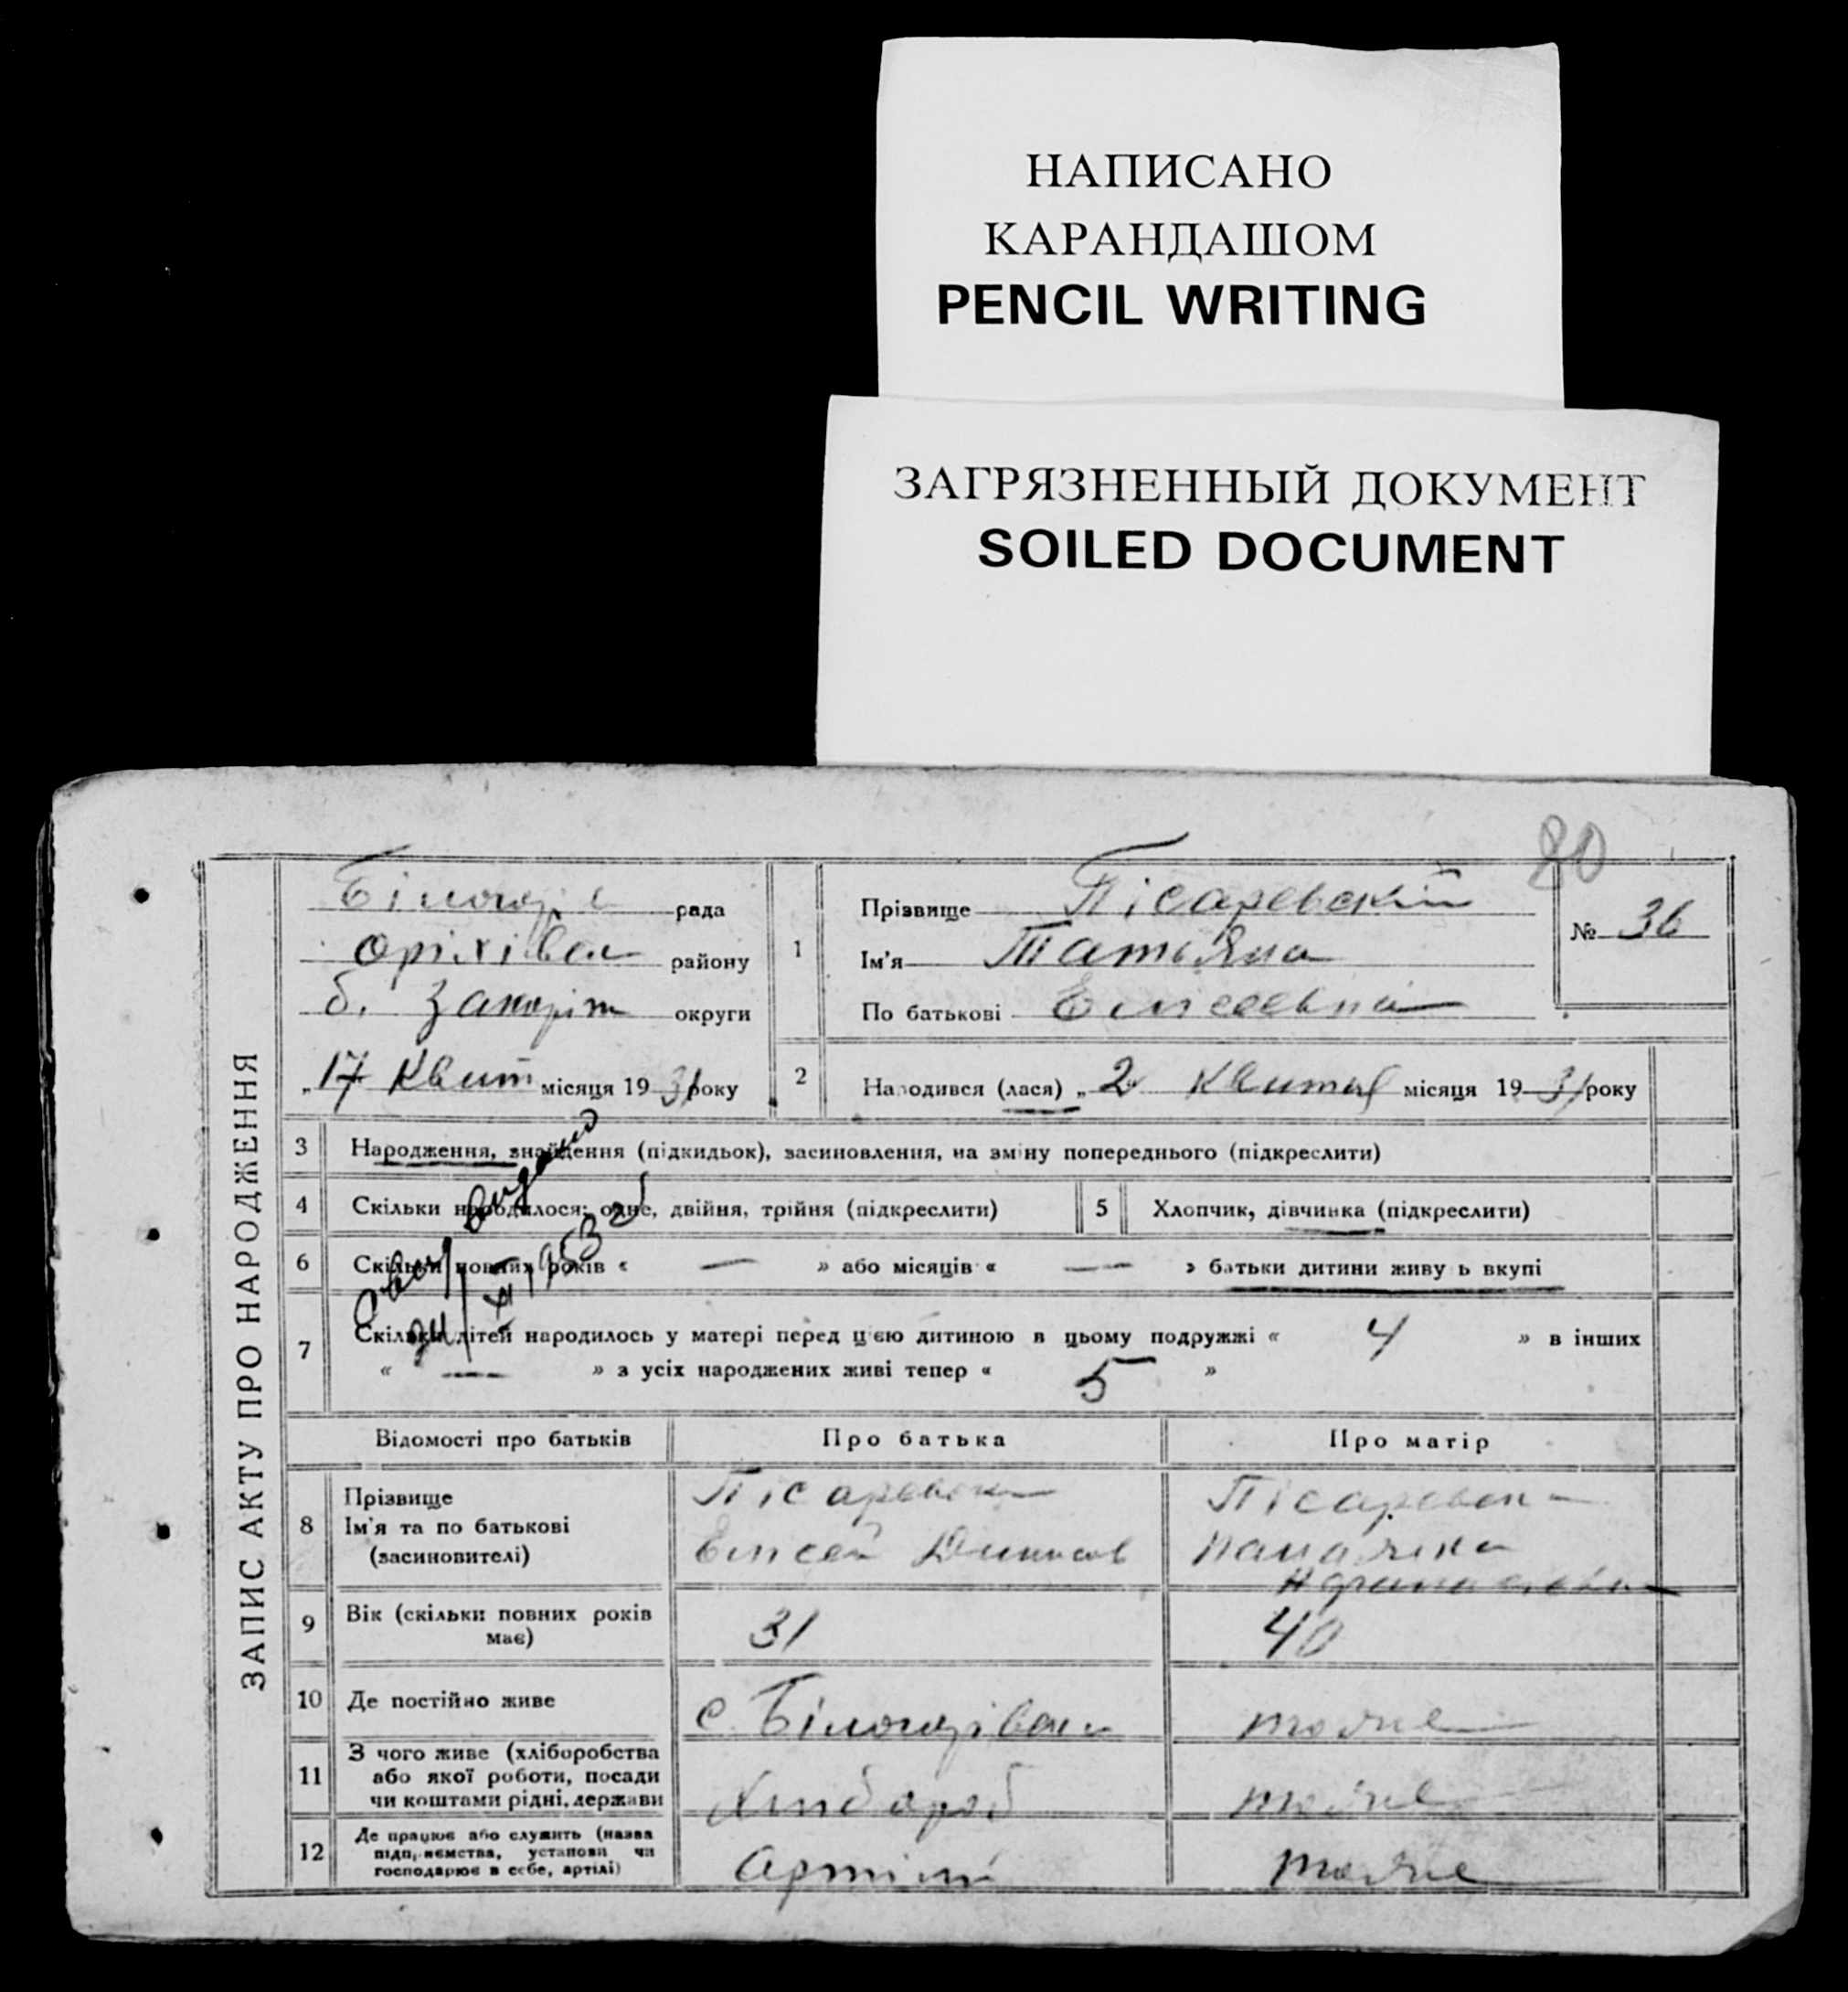 НАПИСАНО
КАРАНДАШОМ
PENCIL WRITING
ЗАГРЯЗНЕННЫЙ ДОКУМЕНТ
SOILED DOCUMENT
80
ЗАПИС АКТУ ПРО НАРОДЖЕННЯ
рада
району
б. Запоріж округи
„17 Квит місяця 19 31 року
1
Прізвище Пісаревский
Ім'я Татьяна
По батькові Елисеевна
№ 36
2 Народився (лася) „2 Квитня місяця 19 31 року
3 Народження, знайдення (підкидьок), засиновлення, на зміну попереднього (підкреслити)
4 Скільки народилося: одне, двійня, трійня (підкреслити) 5 Хлопчик, дівчинка (підкреслити)
6 Скільки повних років « — » або місяців « — » батьки дитини живуть вкупі
7 Скільки дітей народилось у матері перед цією дитиною в цьому подружжі « 4 » в інших
« — » з усіх народжених живі тепер « 5 »
видано
1953
Відомості про батьків Про батька Про матір
8 Прізвище
Ім'я та по батькові
(засиновителі)
Елисей
9 Вік (скільки повних років
має) 31 40
10 Де постійно живе с. тоже
11 З чого живе (хліборобства
або якої роботи, посади
чи коштами рідні, держави
Хлибороб тоже
12 Де працює або служить (назва
підприємства, установи чи
господарює в себе, артілі)
Артіли тоже